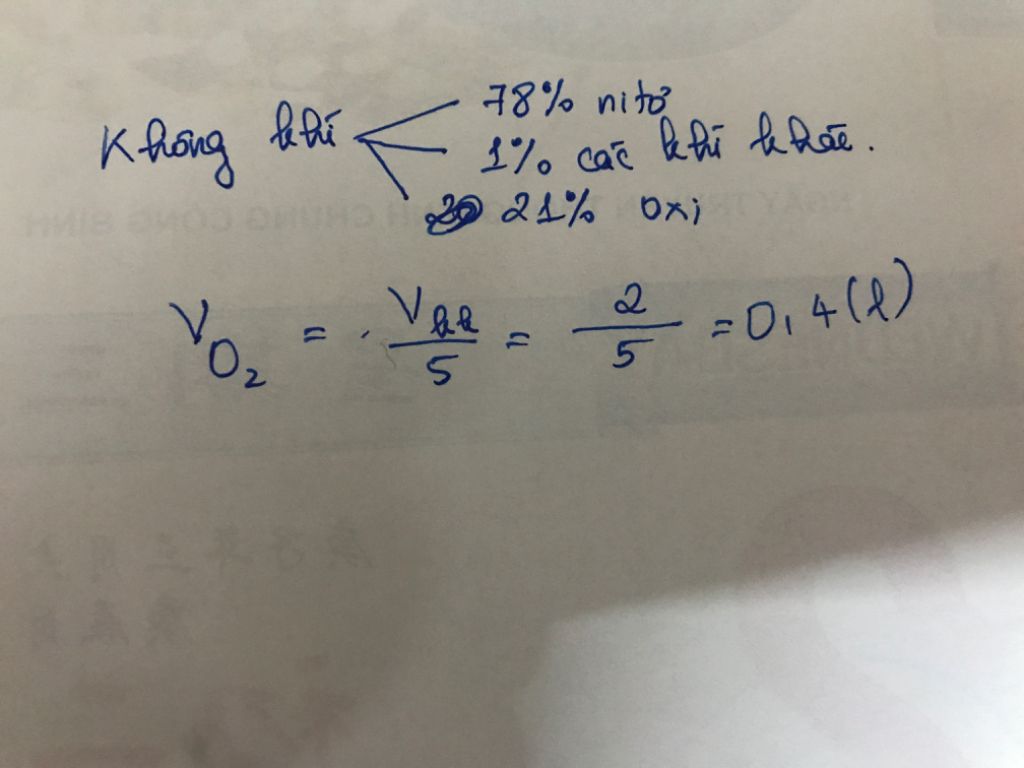 Không khí
78% nitơ
1% các khí khác.
21% oxi
V O₂ = V kk / 5 = 2 / 5 = 0,4 (l)